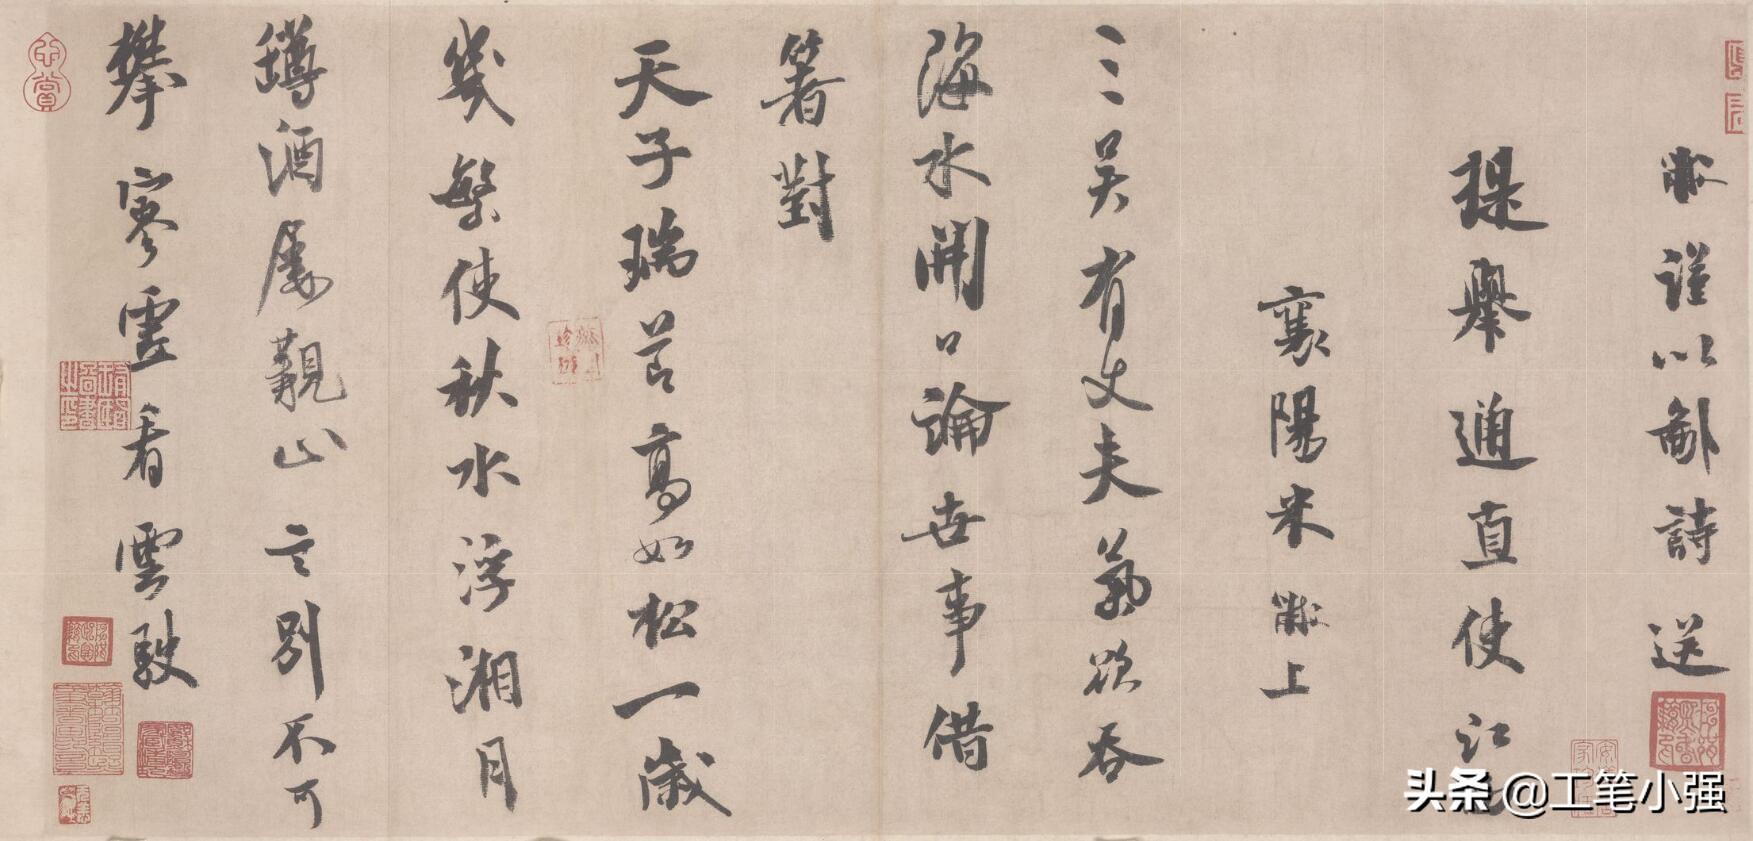 黻謹以鄙詩送
提舉通直使江
襄陽米黻上
三吳有丈夫氣欲吞
海水開口論世事借
箸對
天子瑞節高如松一歲
幾繁使秋水浮湘月
罇酒屢覯止言別不可
攀寥虛看雲駛
头条 @工笔小强